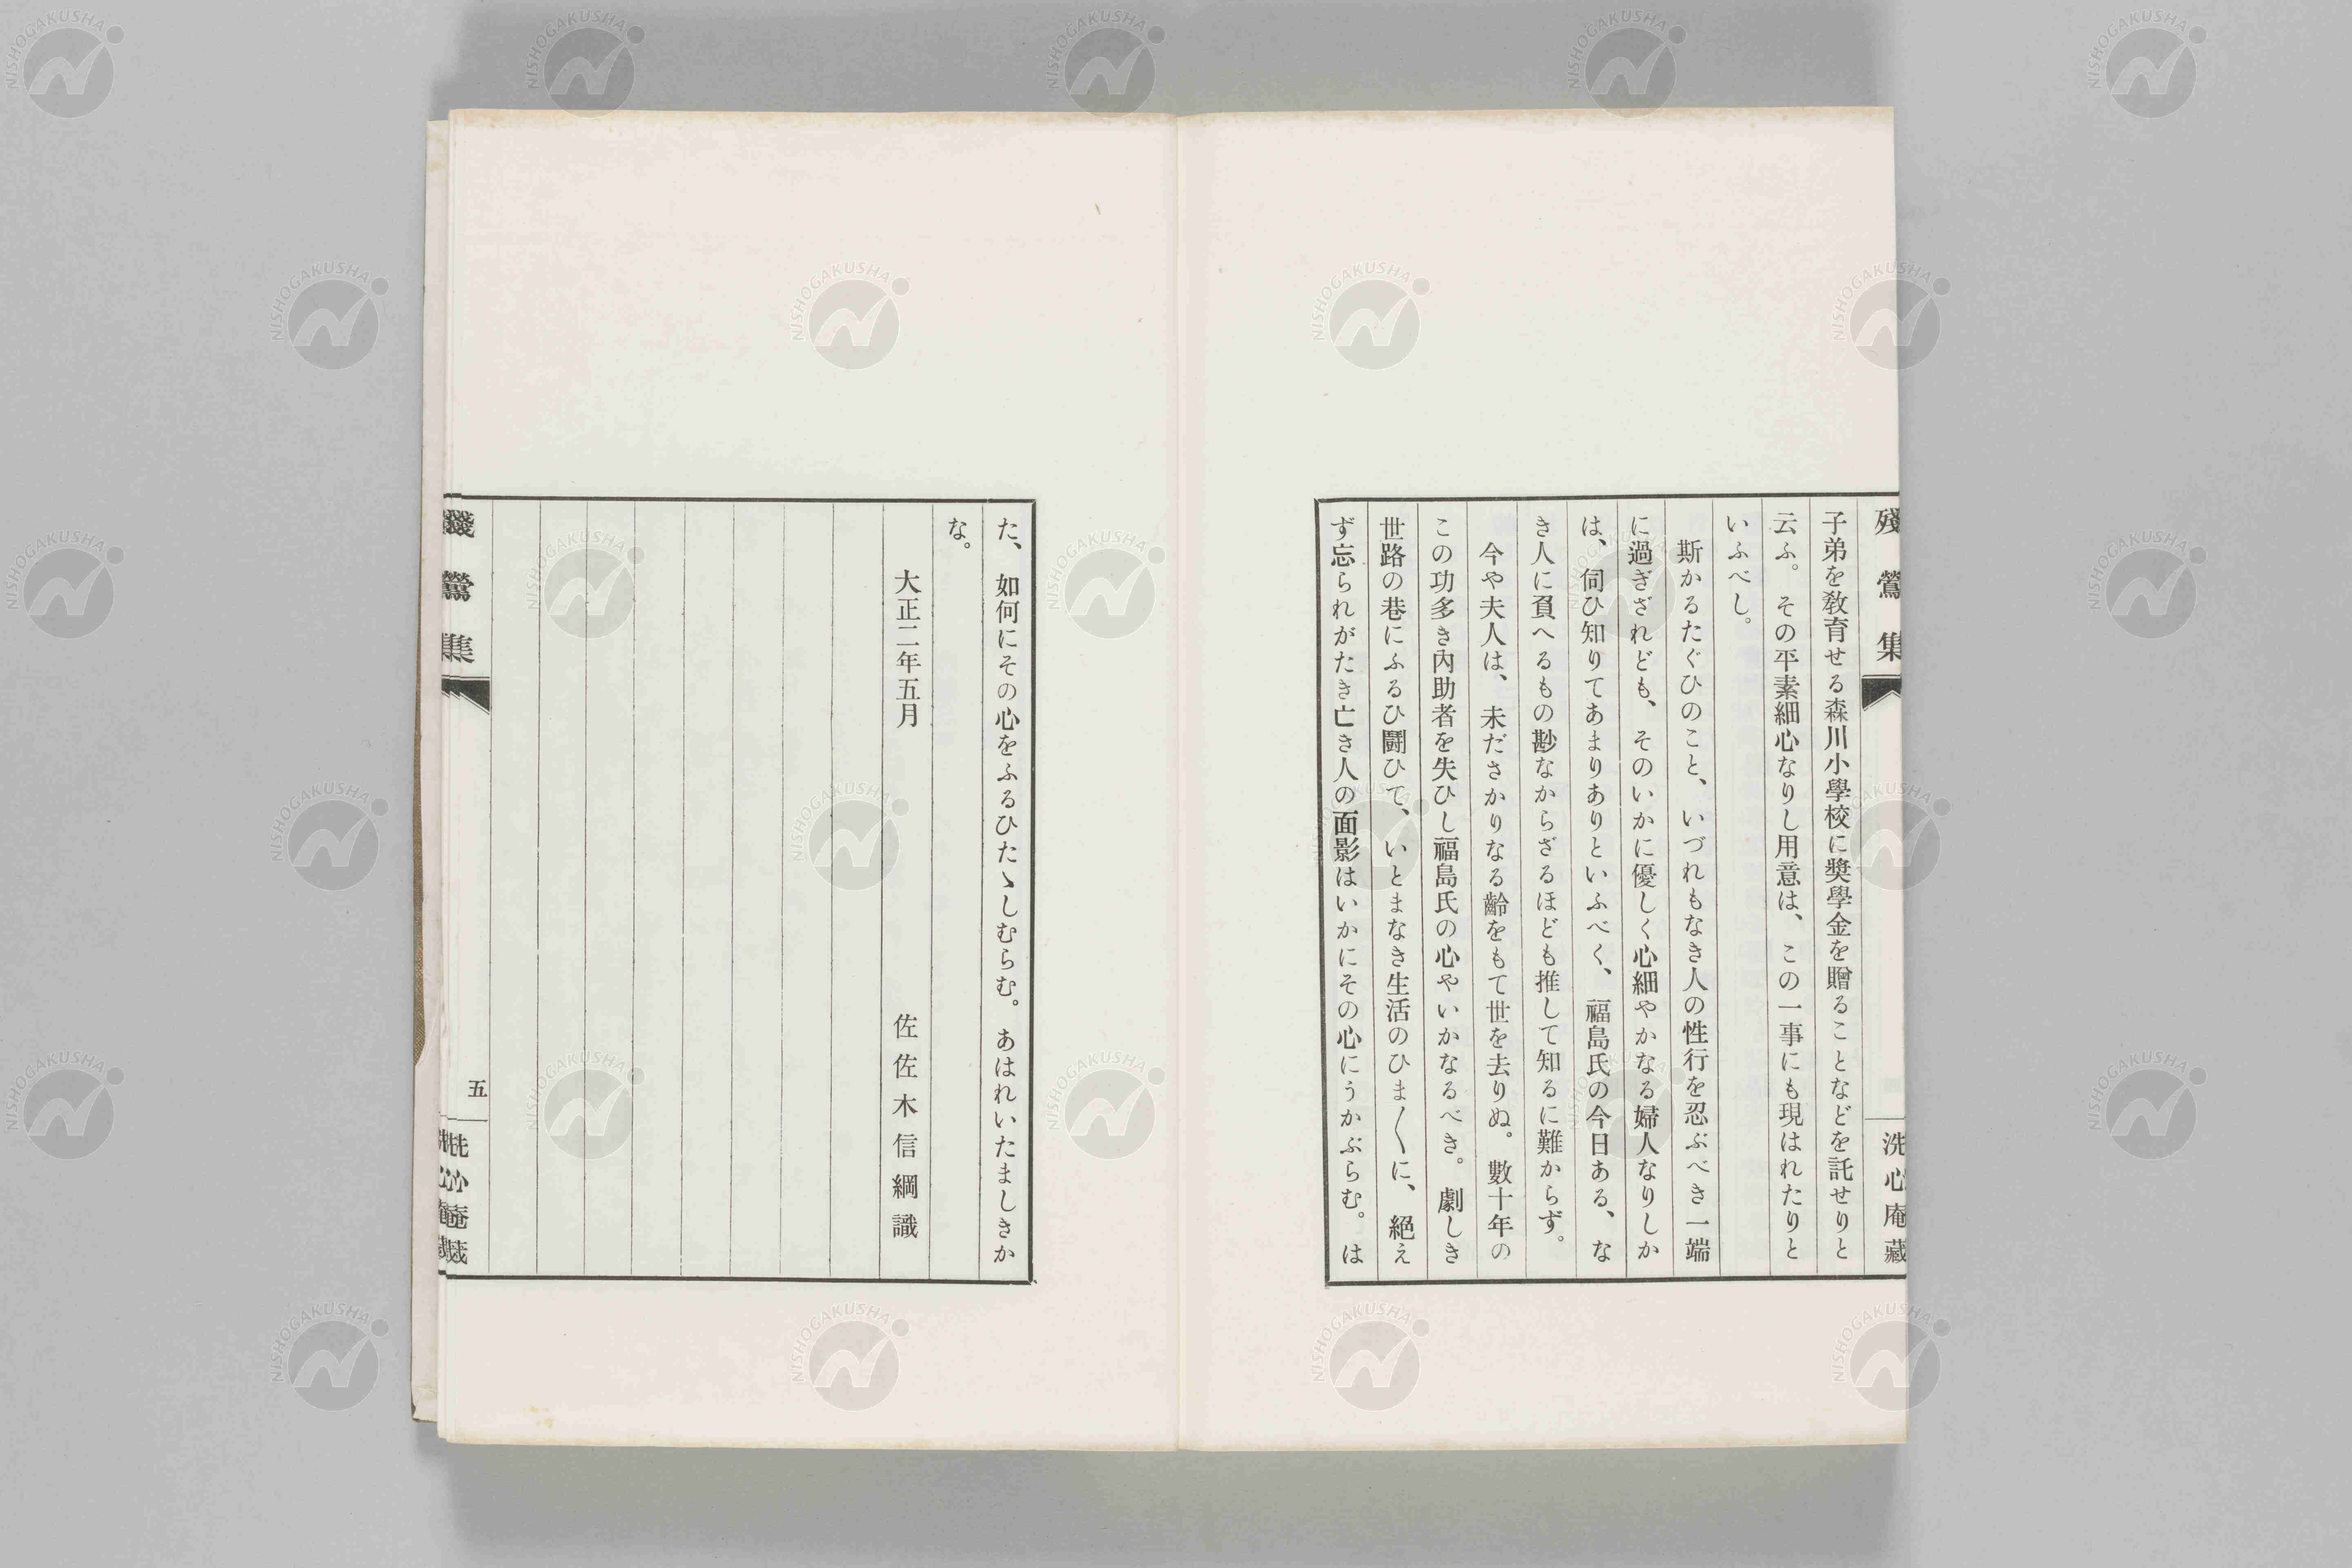 殘鶯集
洗心庵藏
子弟を敎育せる森川小學校に奬學金を贈ることなどを託せりと
云ふ。その平素細心なりし用意は、この一事にも現はれたりと
いふべし。
斯かるたぐひのこと、いづれもなき人の性行を忍ぶべき一端
に過ぎざれども、そのいかに優しく心細やかなる婦人なりしか
は、伺ひ知りてあまりありといふべく、福島氏の今日ある、な
き人に負へるもの尠なからざるほども推して知るに難からず。
今や夫人は、未ださかりなる齡をもて世を去りぬ。數十年の
この功多き內助者を失ひし福島氏の心やいかなるべき。劇しき
世路の巷にふるひ鬪ひて、いとまなき生活のひま〱に、絕え
ず忘られがたき亡き人の面影はいかにその心にうかぶらむ。は
た、如何にその心をふるひたゝしむらむ。あはれいたましきか
な。
大正二年五月
佐佐木信綱識
殘鶯集
五
洗心庵藏
NISHOGAKUSHA